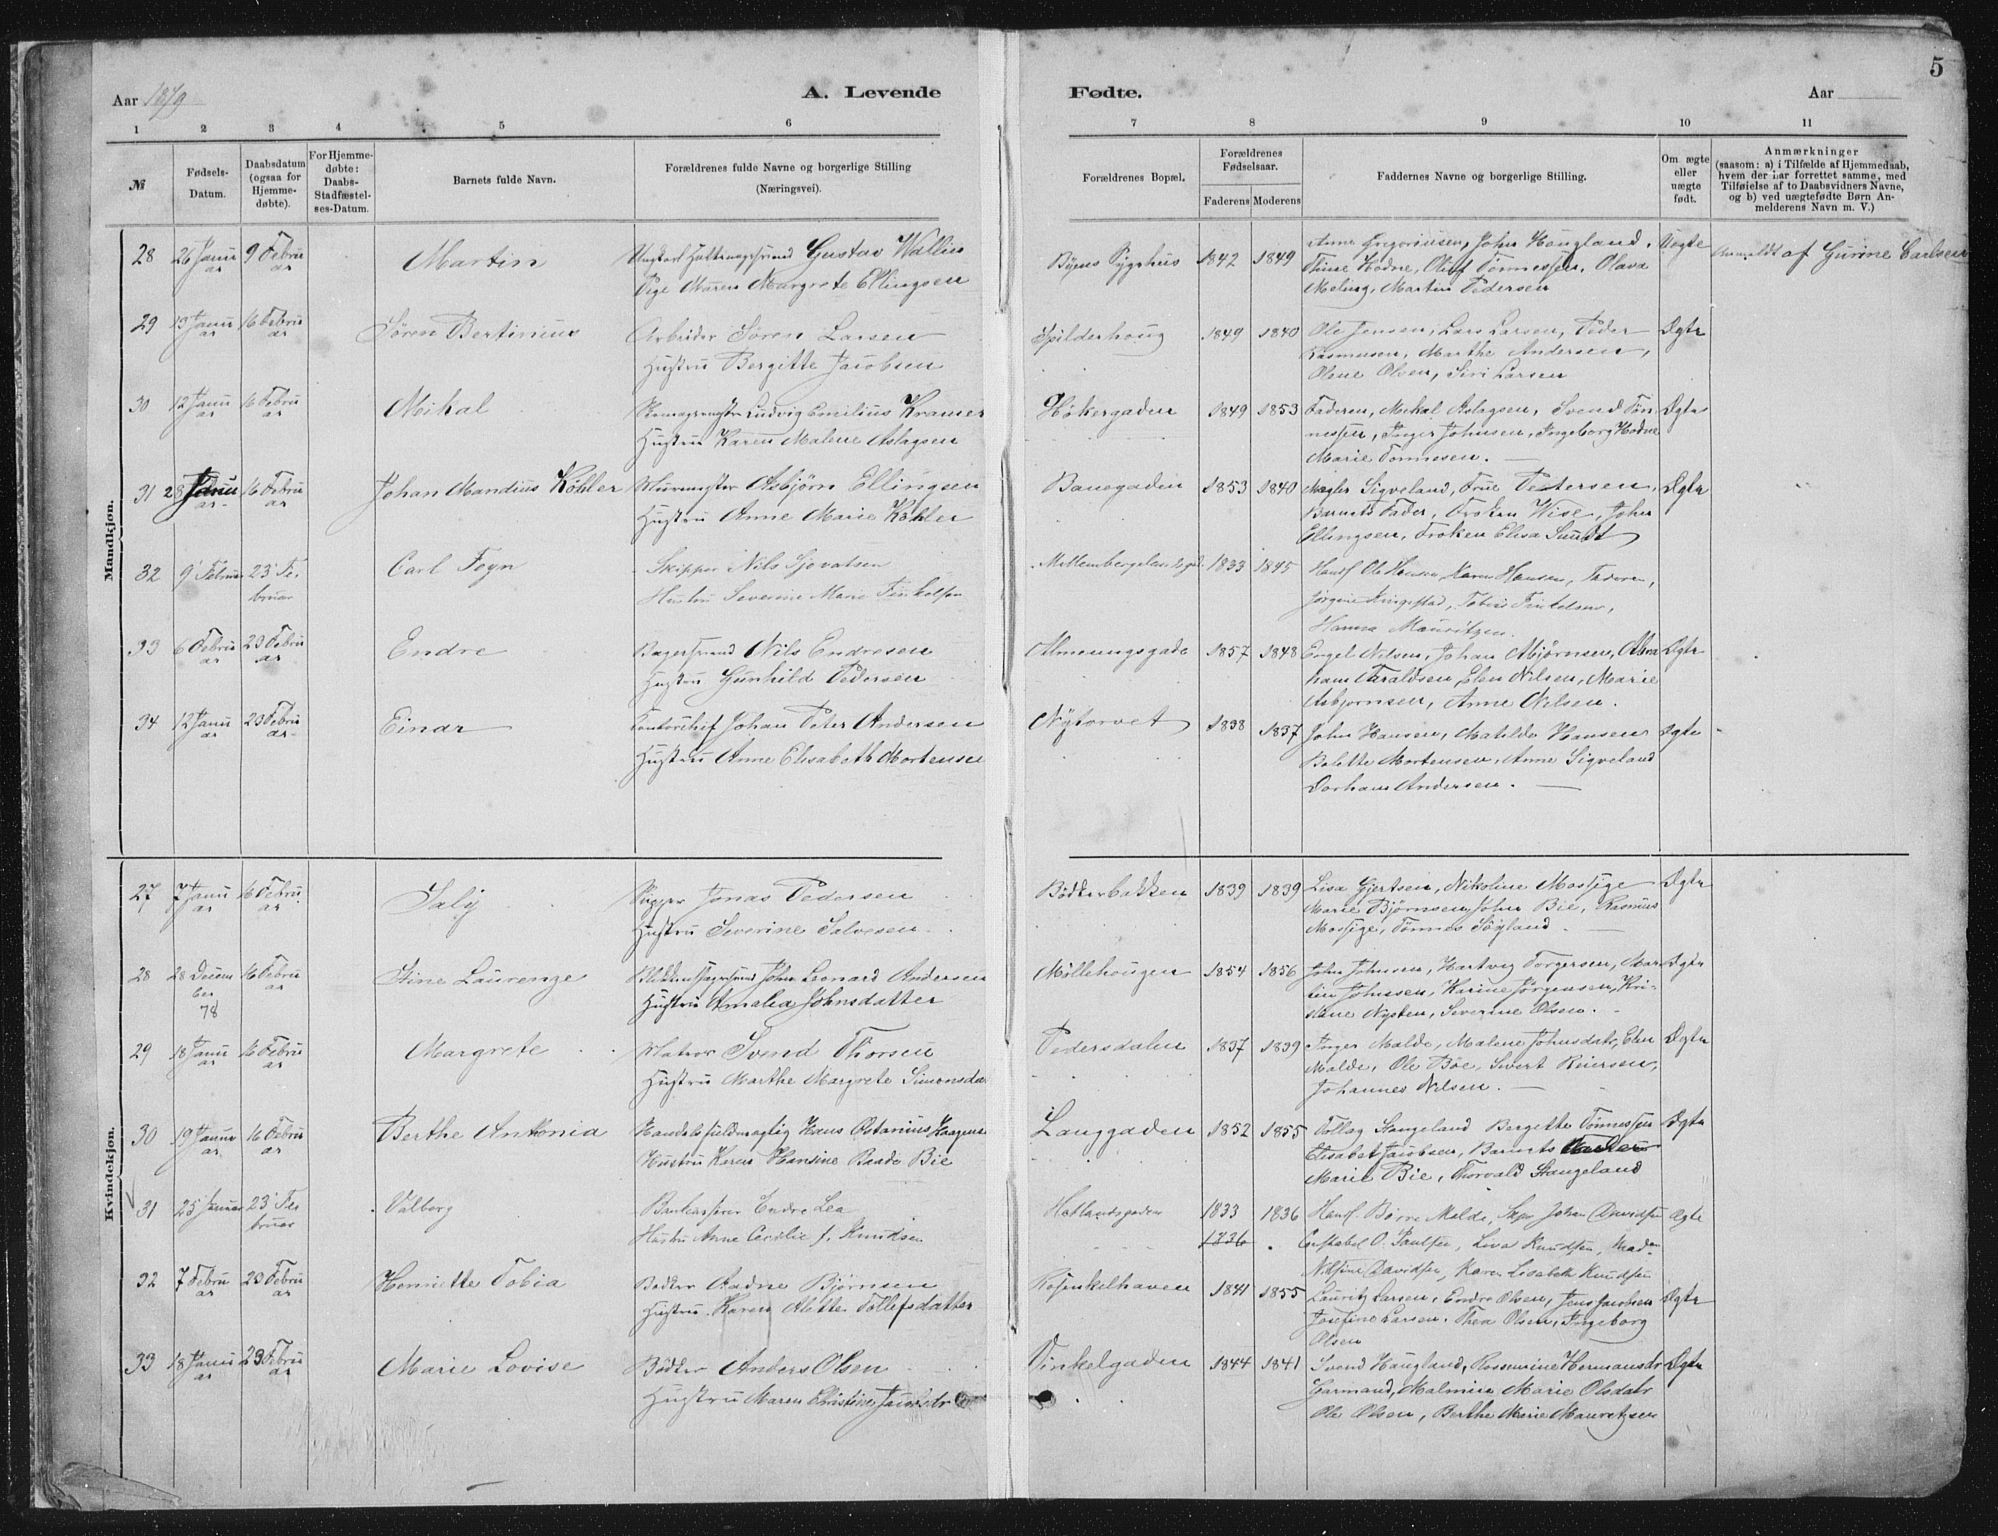 5
Aar 1879
A. Levende
Fødte.
Aar
1 2 3 4 5 6 7 8 9 10 11
№
Fødsels-Datum.
Daabsdatum (ogsaa for Hjemme-døbte).
For Hjemme-døbte: Daabs-Stadfæstel-ses-Datum.
Barnets fulde Navn.
Forældrenes fulde Navne og borgerlige Stilling (Næringsvei).
Forældrenes Bopæl.
Forældrenes Fødselsaar.
Faderens Moderens
Faddernes Navne og borgerlige Stilling.
Om ægte eller uægte født.
Anmærkninger
(saasom: a) i Tilfælde af Hjemmedaab,
hvem der har forrettet samme, med
Tilføielse af to Daabsvidners Navne,
og b) ved uægtefødte Børn An-
melderens Navn m. V.)
Mandkjøn.
28 26 Januar 9 Februar Martin Gustav Wallin Byens Sygehus 1842 1849 Anne Gregoriusen, John Haugland, Uægte Anmeldt af Gurine Carlsen
Pige Maren Margrete Ellingsen Thine Hodne, Oluf Tønnessen, Olava
Meling, Martin Pedersen
29 13 Januar 16 Februar Søren Bertinius Arbeider Søren Larsen Spilderhoug 1849 1840 Ole Jensen, Lars Larsen, Peder Ægte
Hustru Bergitte Jacobsen Rasmusen, Marthe Andersen,
Olene Olsen, Siri Larsen
30 12 Januar 16 Februar Mikal Ludvig Emilius Kramer Høkergaden 1849 1853 Faderen, Mikal Aslagsen, Svend Tøn- Ægte
Hustru Karen Malene Aslagsen nessen, Inger Johnsen, Ingeborg Hodne
Marie Tønnesen.
31 28 Januar 16 Februar Johan Mandius Køhler Murmester Asbjørn Ellingsen Banegaden 1853 1840 Mægler Sigveland, Frue Petersen, Ægte
Hustru Anne Marie Køhler Barnets Fader, Frøken Wise, John
Ellingsen, Frøken Elisa Sundt
32 9' Februar 23' Februar Carl Feyn Skipper Nils Sjovatsen 1833 1845 Ole Hansen, Karen Hansen, Faderen,
Hustru Severine Marie Jørgine Ringstad, Tobias
Hanna Mauritzen.
33 6 Februar 23 Februar Endre Bagersvend Nils Endresen Almeningsgade 1857 1848 Engel Nilsen, Johan Asbjørnsen, Abra- Ægte
Hustru Gunhild Pedersen ham Taraldsen, Elen Nilsen, Marie
Asbjørnsen, Anne Nilsen.
34 12 Januar 23 Februar Einar Kontorchef Johan Peter Andersen Nytorvet 1838 1837 John Hansen, Matilde Hansen Ægte
Hustru Anne Elisabeth Mortensen Bolette Mortensen, Anne Sigveland
Andersen.
Kvindekjøn.
27 7 Januar 16 Februar Saly Skipper Jonas Pedersen Bødkerbakken 1839 1839 Lisa Gjertsen, Nikoline Mossige Ægte
Hustru Severine Salvesen Marie Bjørnsen, John Bie, Rasmus
Mossige, Tønnes Søyland.
28 28 December 78 16 Februar Stine Laurenze John Leonard Andersen Møllehougen 1854 1856 John Johnsen, Hartvig Torgersen, Mar- Ægte
Hustru Amalia Johnsdatter tin Johnsen, Karine Jørgensen, Kri-
stiane Nysten, Severine Olsen.
29 18 Januar 16 Februar Margrete Matros Svend Thorsen Pedersdalen 1837 1839 Inger Malde, Malene Johnsdatr, Elen Ægte
Hustru Marthe Margrete Simonsdtr Malde, Ole Bøe, Sivert Reiersen,
Johannes Nilsen.
30 19 Januar 16 Februar Berthe Antonia Handelsfuldmægtig Hans Langgaden 1852 1855 Tollag Stangeland Bergitte Tønnessen Ægte
Hustru Karen Hansine Raade Bie Elisabet Jacobsen, Barnets Fader
Marie Bie, Thorvald Stangeland
31 25 Januar 23' Februar Valborg Bankcasserer Endre Lea Hetlandsgaden 1833 1836 Børre Malde, Johan Davidsen Ægte
Hustru Anne Cecilie f. Knudsen 1836 O. Paulsen, Lisa Knudsen, Mad.
Davidsen, Karen Lisabeth Knudsen
32 7 Februar 23 Februar Henriette Tobia Bødker Aadne Bjørnsen Rosenkelhaven 1841 1855 Lauritz Larsen, Endre Olsen, Jens Jacobsen Ægte
Hustru Karen Alette Tollefsdatter Josefine Larsen, Thea Olsen, Ingeborg
Olsen
33 18 Januar 23 Februar Marie Lovise Bødker Anders Olsen Vinkelgaden 1844 1841 Svend Haugland, Hermansdr Ægte
Hustru Maren Christine Garmand, Malmine Marie Olsdatr
Ole Olsen, Berthe Marie Mauretzsen